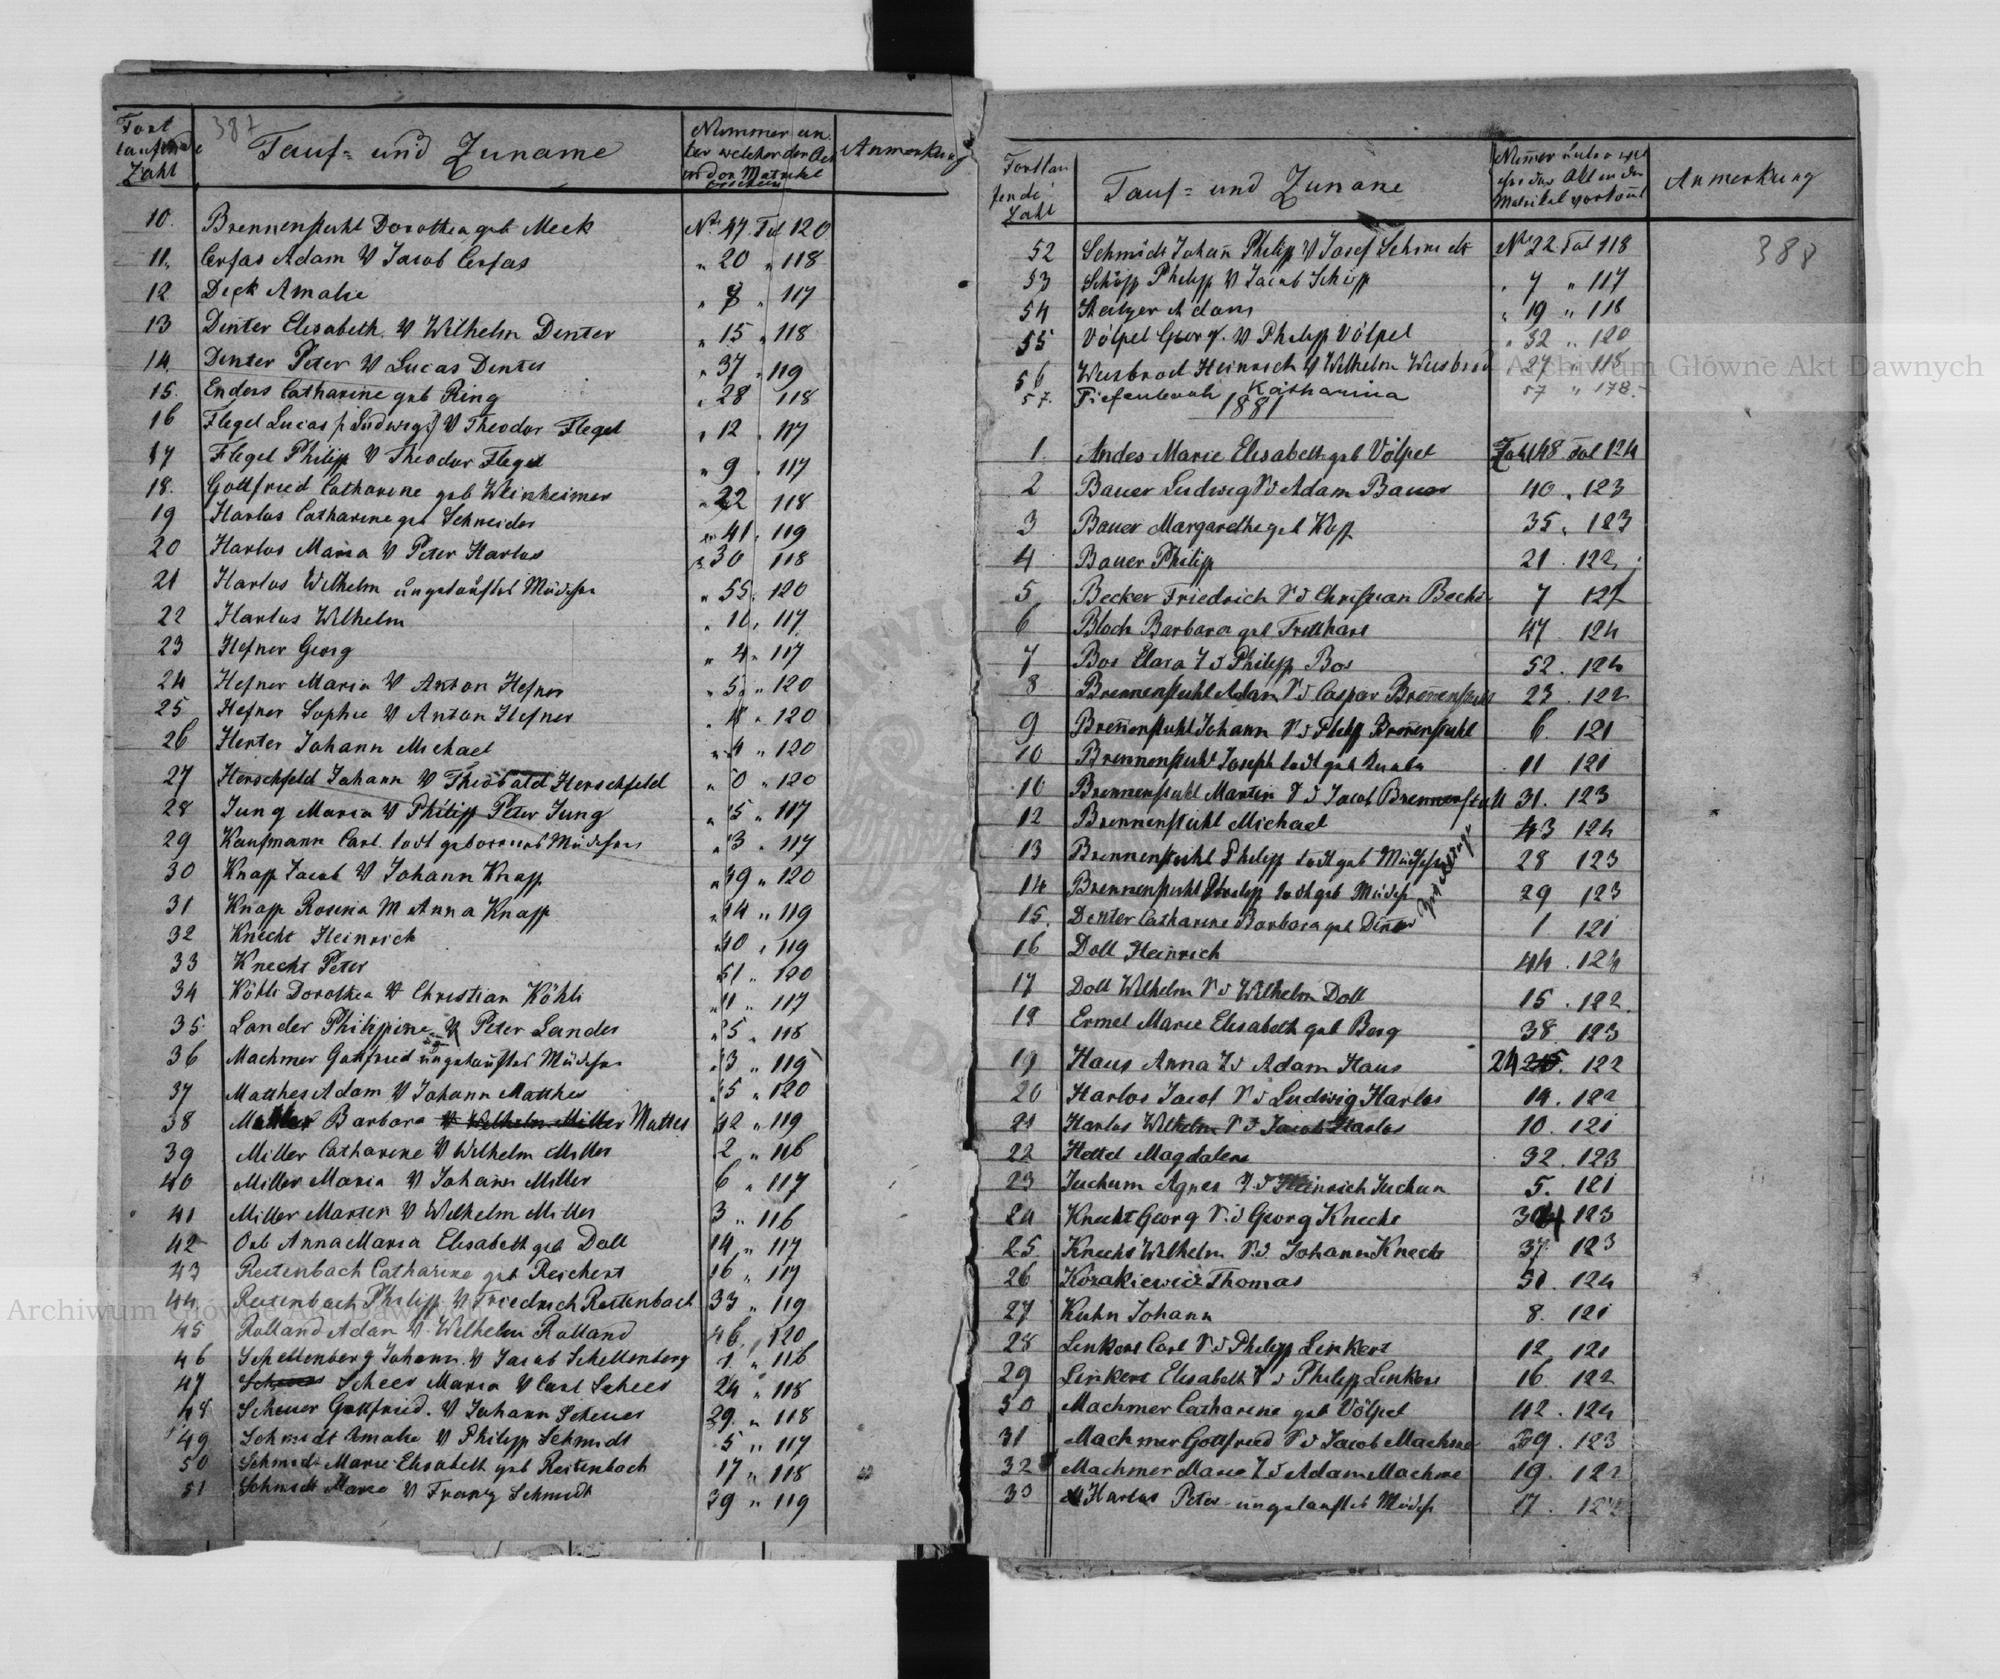 387
Fort laufende Zahl
Tauf- und Zuname
Nummer unter welcher der Act in der Matrikel
Anmerkung
10. Brennenstuhl Dorothea geb Meck No 47 Fol 120
11. Cerfas Adam V Jacob Cerfas " 20 " 118
12 Deck Amalie " 8 " 117
13 Denter Elisabeth V Wilhelm Denter " 15 " 118
14. Denter Peter V Lucas Denter " 37 " 119
15. Enders Catharine geb Ring " 28 118
16 Flegel Lucas (Ludwig) V Theodor Flegel " 12 " 117
17 Flegel Philipp V Theodor Flegel " 9 " 117
18. Gottfried Catharine geb Weinheimer " 22 118
19 Harlos Catharine geb Schneider " 41 " 119
20 Harlos Maria V Peter Harlos " 30 118
21 Harlos Wilhelm ungetauftes Mädchen " 55 " 120
22 Harlos Wilhelm " 10 " 117
23 Hefner Georg " 4 " 117
24 Hefner Maria V Anton Hefner " 5 " 120
25 Hefner Sophie V Anton Hefner " 120
26 Herter Johann Michael " 4 " 120
27 Herschfeld Johann V Theobald Herschfeld " 0 " 120
28 Jung Maria V Philipp Peter Jung " 5 " 117
29 Kaufmann Carl todt geborenes Mädchen " 3 " 117
30 Knapp Jacob V Johann Knapp " 49 " 120
31 Knapp Rosina M Anna Knapp " 34 " 119
32 Knecht Heinrich " 40 " 119
33 Knecht Peter 51 " 120
34 Köhli Dorothea V Christian Köhli " 11 " 117
35. Lander Philippine V Peter Lander " 25 " 118
36 Machmer Gottfried ungetauftes Mädchen " 43 " 119
37 Matthes Adam V Johann Matthes " 45 " 120
38 Barbara V Wilhelm Miller Mattes 42 " 119
39 Miller Catharine V Wilhelm Miller 2 " 116
40 Miller Maria V Johann Miller 6 " 117
41 Miller Martin V Wilhelm Miller 3 " 116
42 Orb Anna Maria Elisabeth geb Doll 14 " 117
43 Reitenbach Catharine geb Reichert 16 " 117
44 Reitenbach Philipp V Friedrich Reitenbach 33 " 119
45 Rolland Adam V. Wilhelm Rolland 46 " 120
46 Schellenberg Johann V Jacob Schellenberg 1 " 116
47 Scheer Maria V Carl Scheer 24 " 118
48 Scheuer Gottfried. V Johann Scheuer 29 " 118
49 Schmidt Amalie V Philipp Schmidt 5 " 117
50 Schmidt Marie Elisabeth geb Reitenbach 17 " 118
51 Schmidt Maria V Franz Schmidt 39 " 119
Fortlaufende Zahl
Tauf- und Zuname
Nummer unter welcher der Akt in der Matrikel vorkommt
Anmerkung
388
52 Schmidt Johann Philipp V Josef Schmidt No 22 Fol 118
53 Schöpp Philipp V Jacob Schöpp " 7 " 117
54 Adam " 19 " 118
55 Völpel Georg. V Philipp Völpel " 32 " 120
56 Weisbrod Heinrich V Wilhelm Weisbrod 27 " 118
57. Tiefenbach Katharina 57 " 178.
1881
1. Andes Marie Elisabeth geb Völpel Zahl 48 Fol 124
2 Bauer Ludwig V d Adam Bauer 40 " 123
3 Bauer Margarethe geb Kopf 35 " 123
4 Bauer Philip 21 . 122
5 Becker Friedrich V d Christian Becker 7 121
6 Bloch Barbara geb Tretthart 47 . 124
7 Bos Clara T d Philipp Bos 52 . 124
8 Brennenstuhl Adam V d Caspar Brennenstuhl 23 . 122
9 Brennenstuhl Johann V d Philip Brennenstuhl 6. 121
10 Brennenstuhl Joseph todt geb Knabe 11 121
10 Brennenstuhl Martin V d Jacob Brennenstuhl 31. 123
12 Brennenstuhl Michael 43 124
13 Brennenstuhl Philipp todt geb Mädchen 28 123
14 Brennenstuhl Philipp todt geb Mädch 29 123
15. Denter Catharine Barbara geb 1 121
16 Doll Heinrich 44 . 124
17 Doll Wilhelm V d Wilhelm Doll 15 . 122.
18 Ermel Marie Elisabeth geb Berg 38. 123
19 Haus Anna T d Adam Haus 24 . 122
20 Harlos Jacob V d Ludwig Harlos 14 . 122
21 Harlos Wilhelm V d Jacob Harlos 10. 121
22 Hettel Magdalena 32 . 123
23 Juchum Agnes T d Heinrich Juchum 5. 121
24 Knecht Georg V. d Georg Knecht 34 123
25. Knecht Wilhelm V. d Johann Knecht 37 123
26 Kozakiewicz Thomas 51 . 124
27 Kuhn Johann 8. 121
28 Linkert Carl V d Philipp Linkert 12 121
29 Linkert Elisabeth T d Philipp Linkert 16. 122
30 Machmer Catharine geb Völpel 42 . 124
31 Machmer Gottfried V d Jacob Machmer 39 . 123
32 Machmer Marie T d Adam Machmer 19. 122
33 Harlos Peter ungetauftes Mädch 17 . 122
Archiwum Główne Akt Dawnych
Archiwum Główne Akt Dawnych